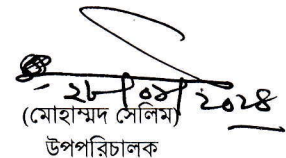 ২৮/০৪/২০২৪
(মোহাম্মদ সেলিম)
উপপরিচালক